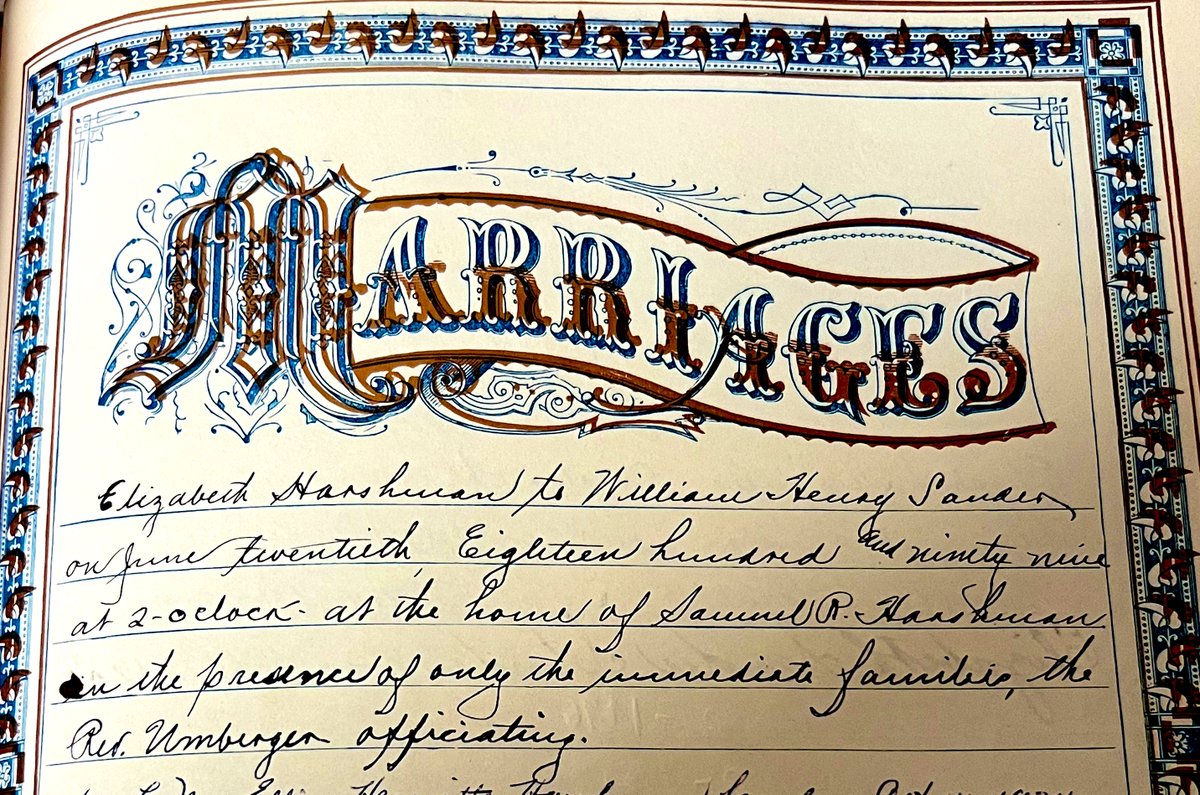 MARRIAGES
Elizabeth Harshman to William Henry Sander
on June twentieth, Eighteen hundred and ninety nine
at 2-oclock- at the home of Samuel R. Harshman
in the presence of only the immediate families, the
Rev. Umberger officiating.